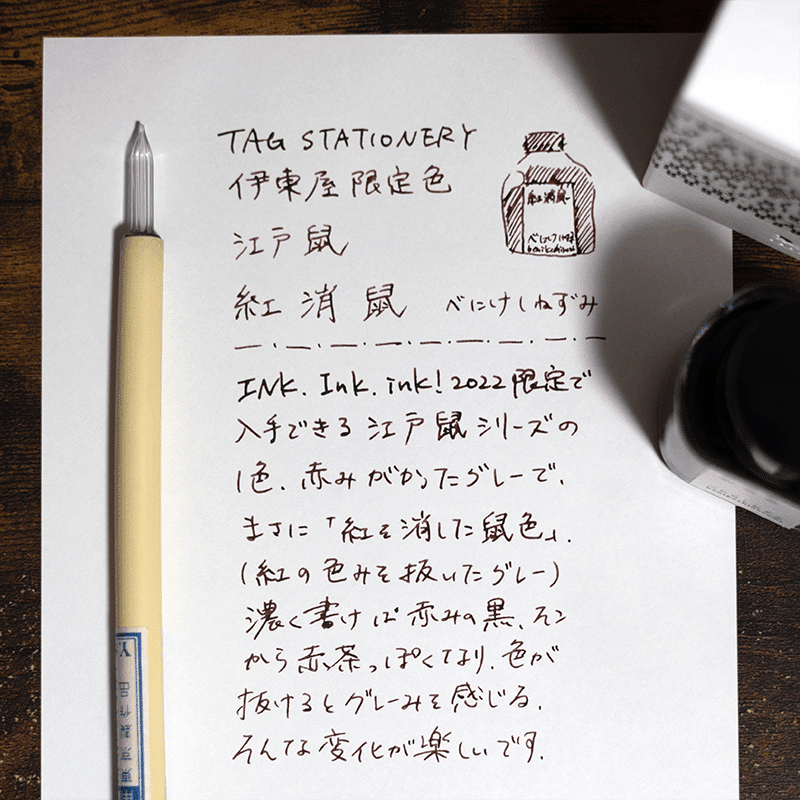 TAG STATIONERY
伊東屋限定色
江戸鼠
紅消鼠 べにけしねずみ
紅消鼠
INK. Ink. ink! 2022 限定で
入手できる江戸鼠シリーズの
1色、赤みがかったグレーで、
まさに「紅を消した鼠色」.
(紅の色みを抜いたグレー)
濃く書けば赤みの黒、そこ
から赤茶っぽくなり、色が
抜けるとグレーみを感じる.
そんな変化が楽しいです.